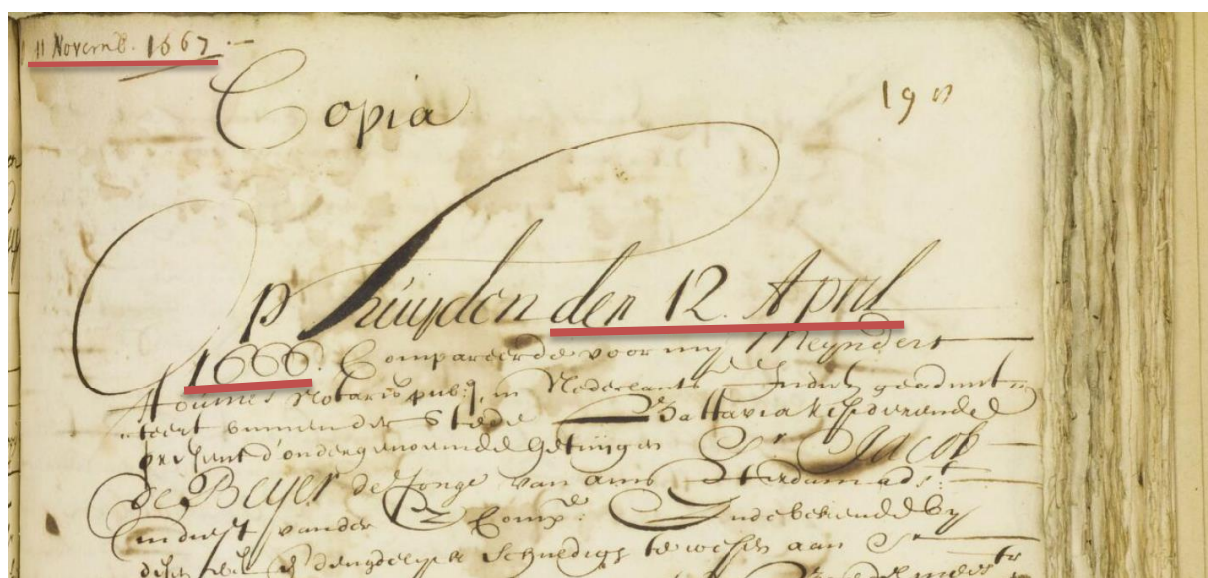 11 Novemb. 1667
Copia
Op huijden den 12. April
1666. Compareerde voor mij Meijndert
Notaris pub: in Nederlants Indien geadmit-
teert binnen der Stede Battavia residerende
present d'ondergenoemde getuijgen Sr. Jacob
de Beijer de Jonge van Amsterdam
in dienst vander E Comp: Ende bekende bij
desen wel deugdelijk schuldigh te wesen aan Sr